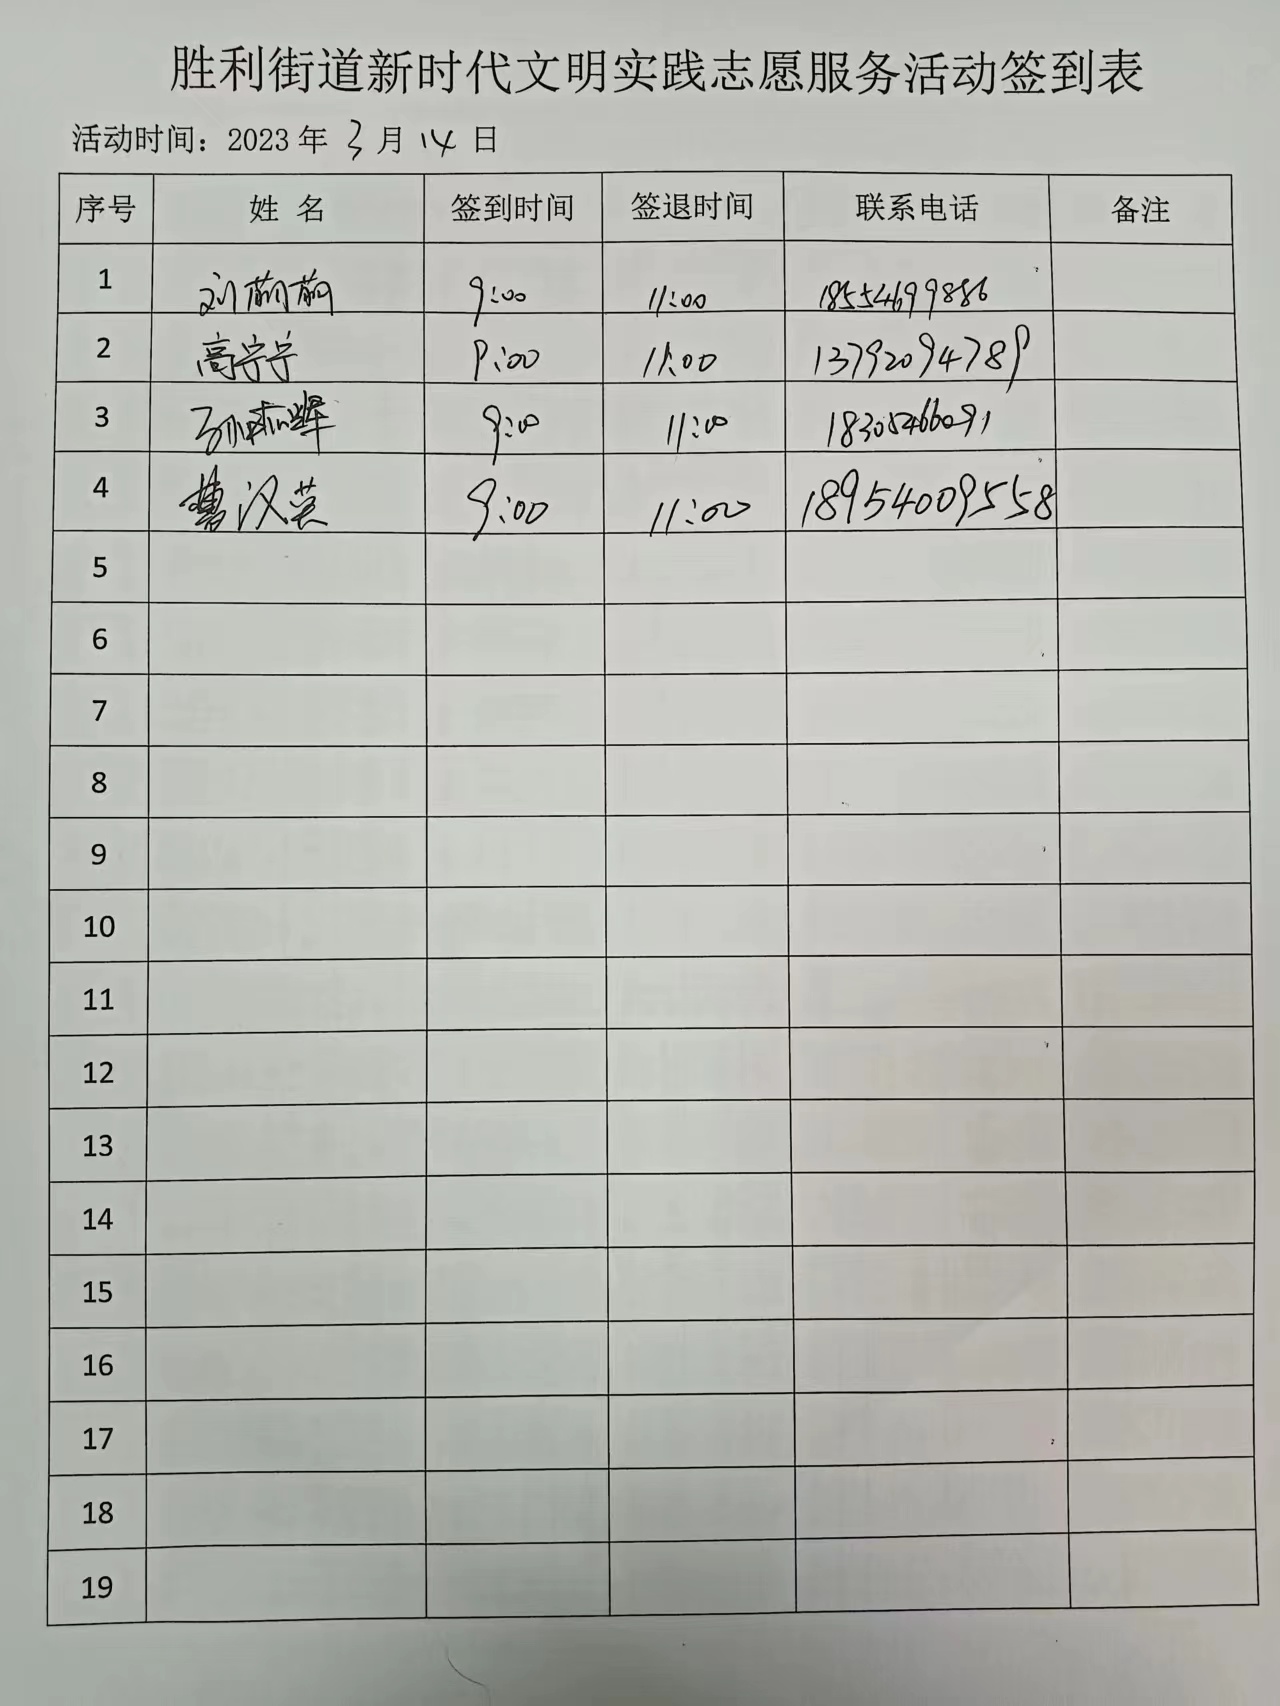 胜利街道新时代文明实践志愿服务活动签到表
活动时间：2023 年 3 月 14 日
序号 姓 名 签到时间 签退时间 联系电话 备注
1 刘萌萌 9:00 11:00 18554699886
2 高宁宁 9:00 11:00 13792094789
3 9:00 11:00 18305466091
4 曹汉英 9:00 11:00 18954009558
5
6
7
8
9
10
11
12
13
14
15
16
17
18
19